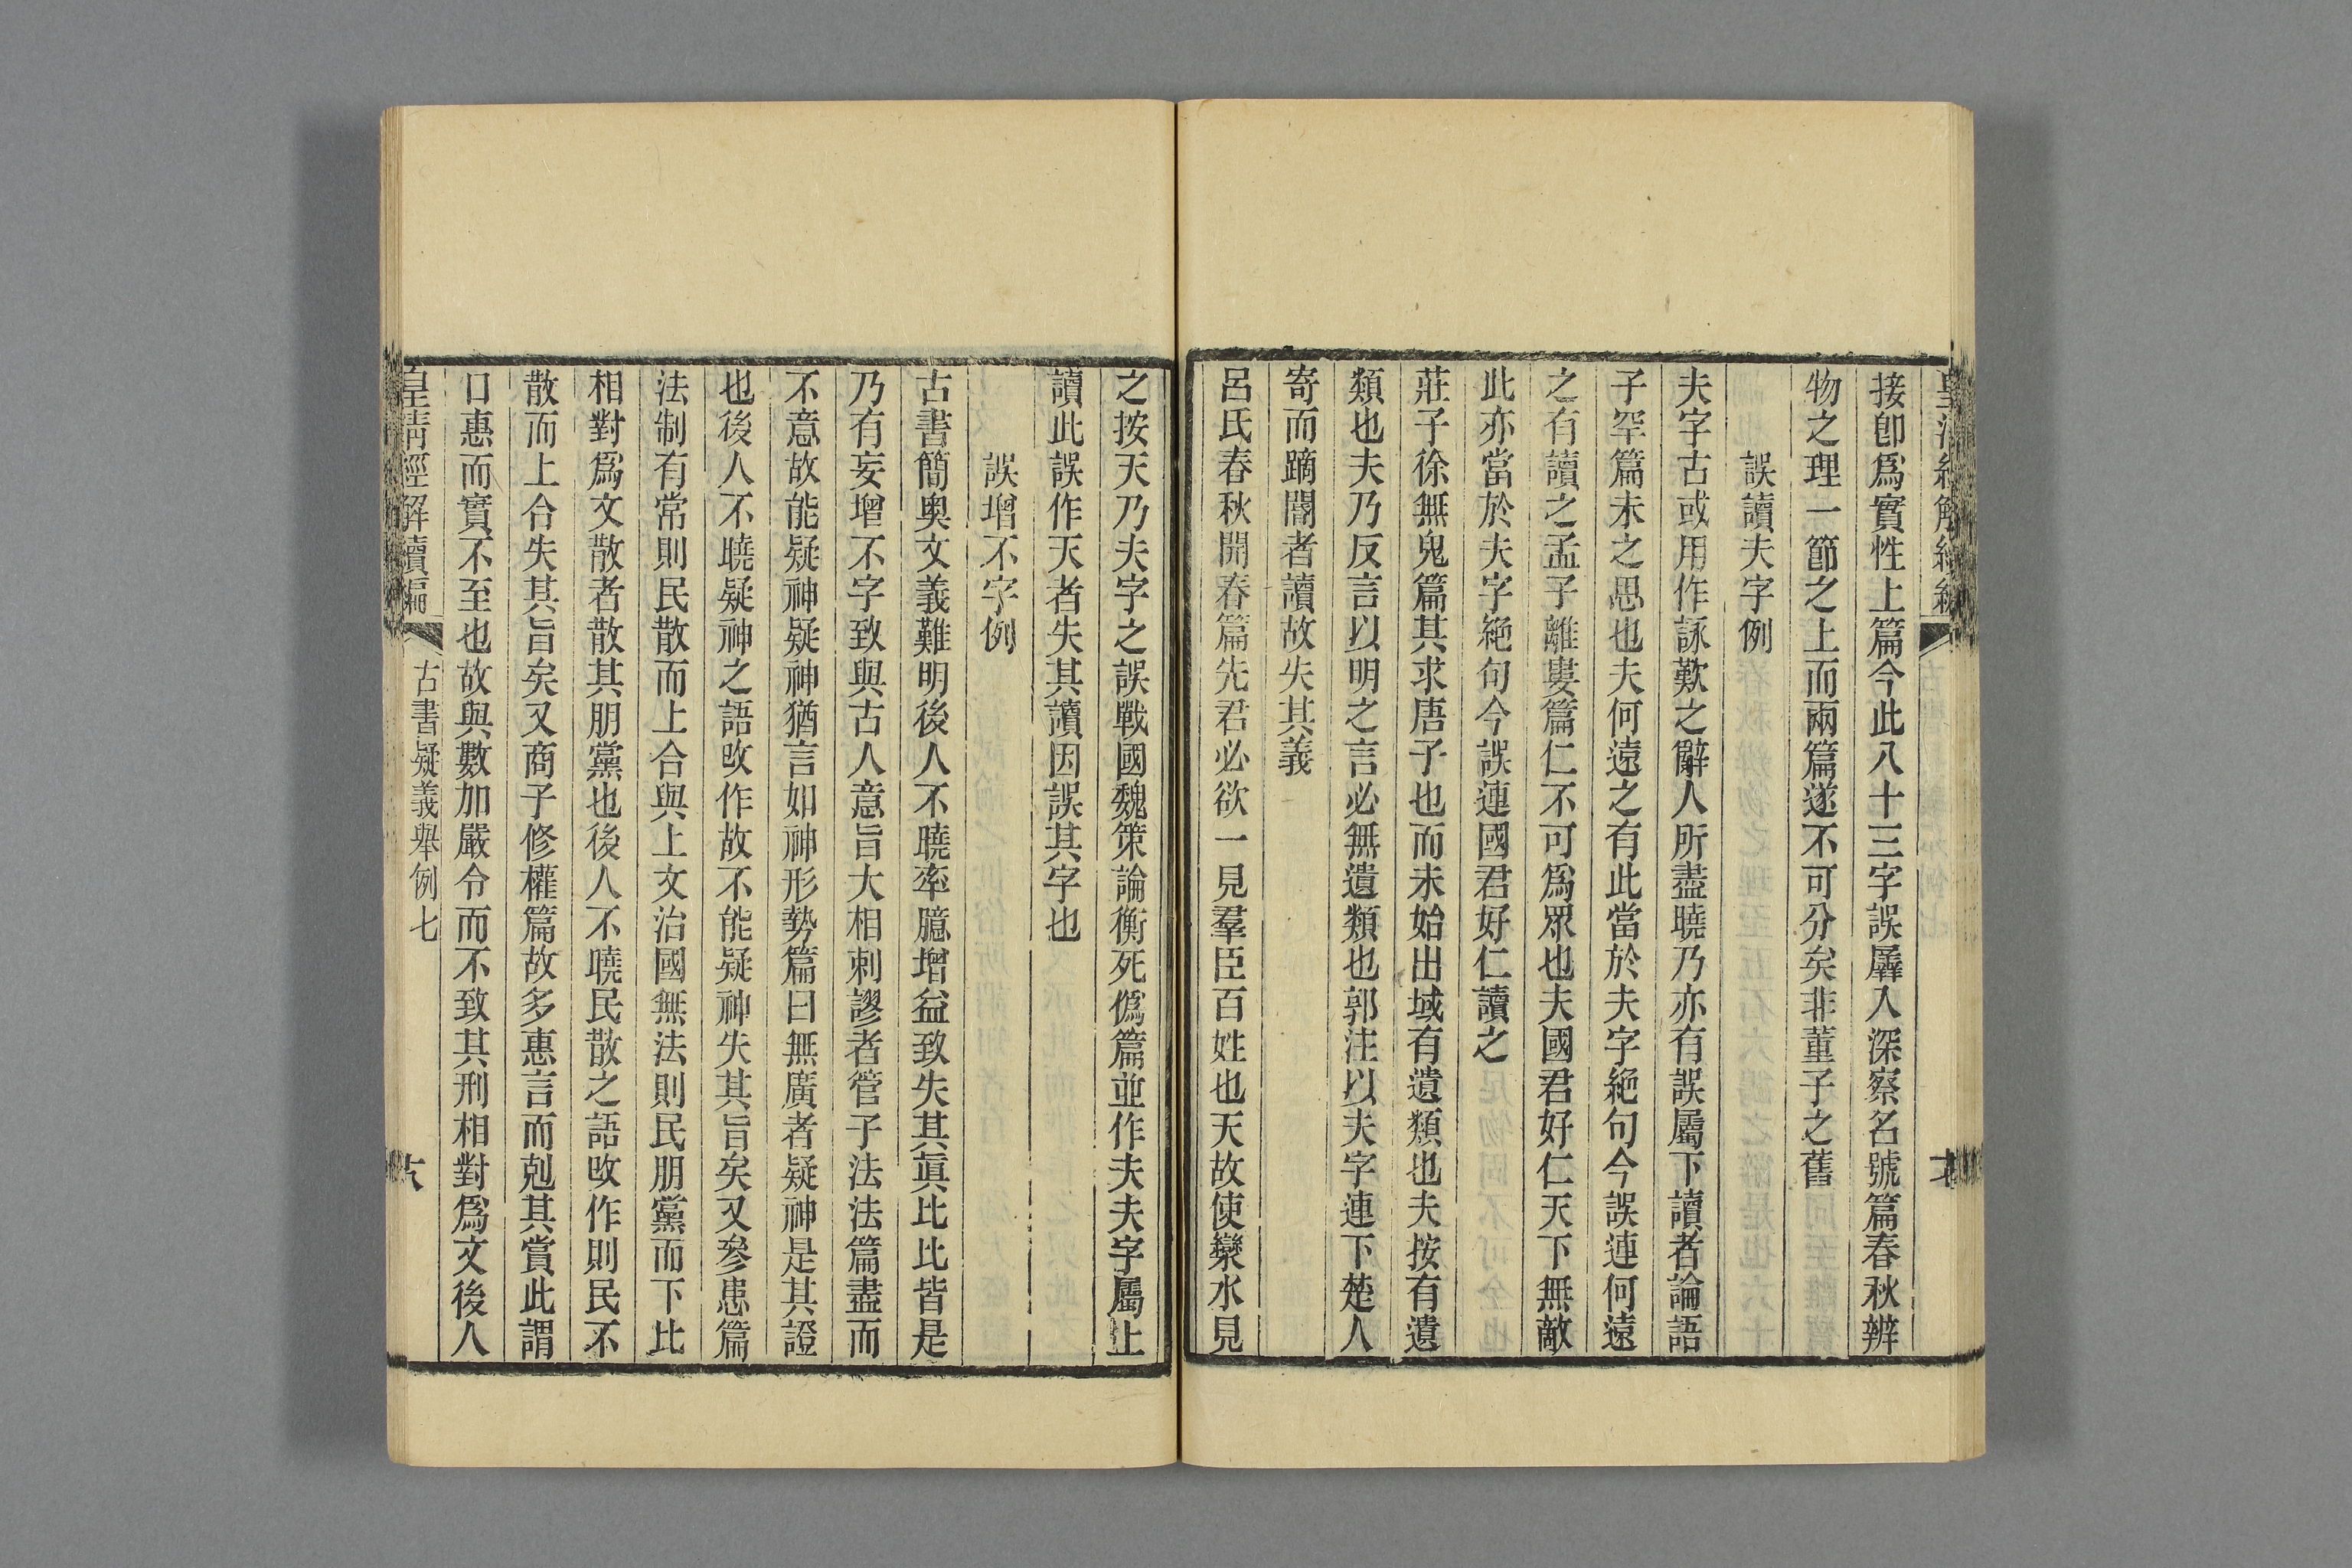 接卽爲實性上篇今此八十三字誤羼入深察名號篇春秋辨
物之理一節之上而兩篇遂不可分矣非董子之舊
誤讀夫字例
夫字古或用作詠歎之辭人所盡曉乃亦有誤屬下讀者論語
子罕篇未之思也夫何遠之有此當於夫字絕句今誤連何遠
之有讀之孟子離婁篇仁不可爲眾也夫國君好仁天下無敵
此亦當於夫字絕句今誤連國君好仁讀之
莊子徐無鬼篇其求唐子也而未始出域有遺類也夫按有遺
類也夫乃反言以明之言必無遺類也郭注以夫字連下楚人
寄而蹢閽者讀故失其義
呂氏春秋開春篇先君必欲一見羣臣百姓也天故使欒水見
之按天乃夫字之誤戰國魏策論衡死僞篇並作夫夫字屬上
讀此誤作天者失其讀因誤其字也
誤增不字例
古書簡奧文義難明後人不曉率臆增益致失其眞比比皆是
乃有妄增不字致與古人意旨大相剌謬者管子法法篇盡而
不意故能疑神疑神猶言如神形勢篇曰無廣者疑神是其證
也後人不曉疑神之語改作故不能疑神失其旨矣又參患篇
法制有常則民散而上合與上文治國無法則民朋黨而下比
相對爲文散者散其朋黨也後人不曉民散之語改作則民不
散而上合失其旨矣又商子修權篇故多惠言而剋其賞此謂
口惠而實不至也故與數加嚴令而不致其刑相對爲文後人
皇清經解續編
古書疑義舉例七